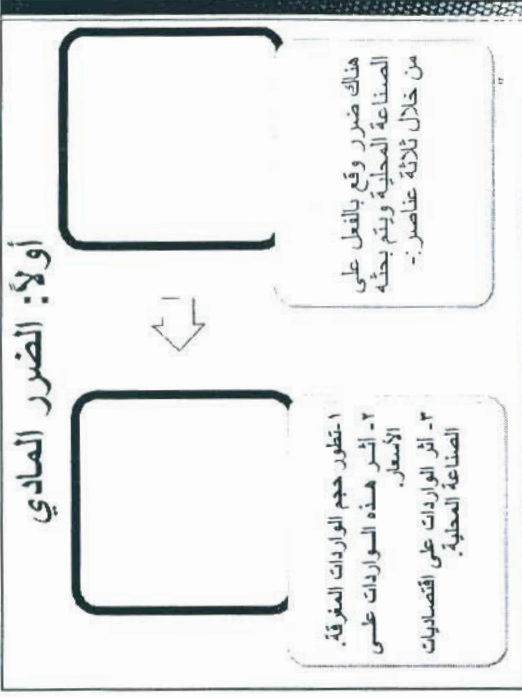 أولاً: الضرر المادي
هناك ضرر وقع بالفعل على
الصناعة المحلية ويتم بحثه
من خلال ثلاثة عناصر:-
١-تطور حجم الواردات المغرقة.
٢- أثر هذه الواردات على
الأسعار.
٣- أثر الواردات على اقتصاديات
الصناعة المحلية.